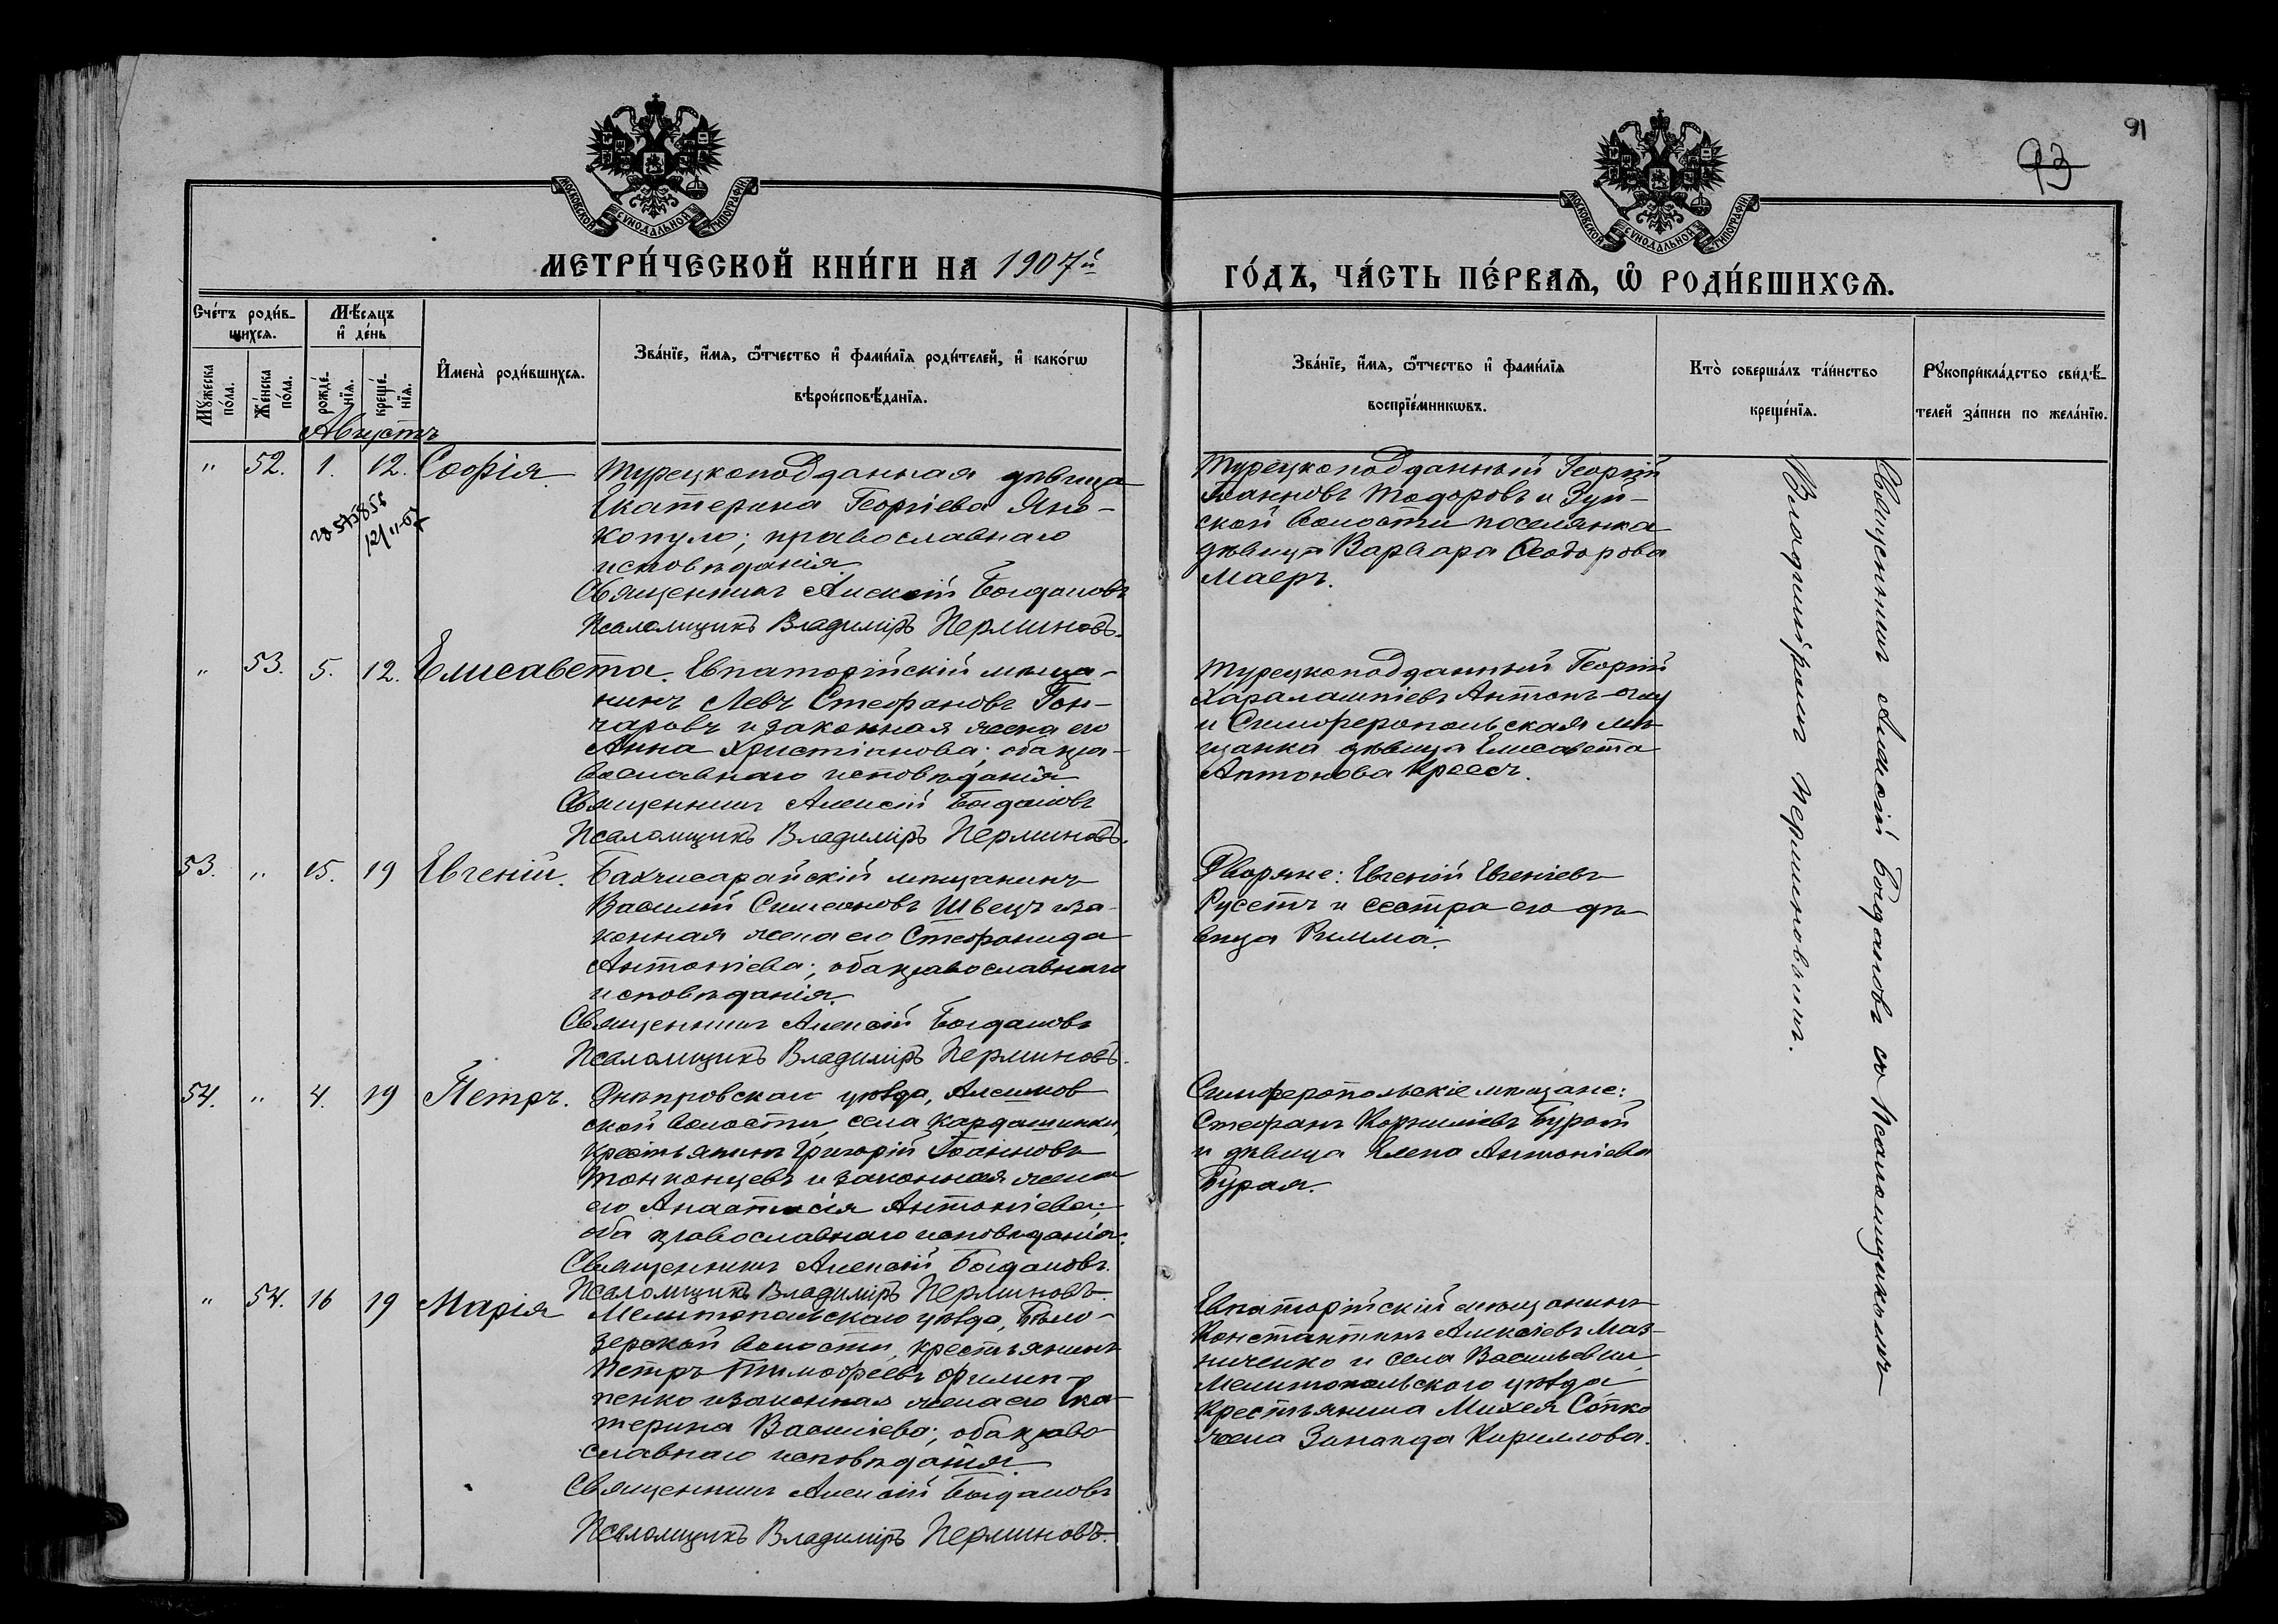 91
93
МОСКОВСКОЙ СѴНОДАЛЬНОЙ ТИПОГРАФІИ
МОСКОВСКОЙ СѴНОДАЛЬНОЙ ТИПОГРАФІИ
МЕТРИ́ЧЕСКОЙ КНИ́ГИ НА 1907й
ГО́ДЪ, ЧА́СТЬ ПЕ́РВАѦ, Ѿ РОДИ́ВШИХСѦ.
Сче́тъ роди́в-
шихсѧ.
Мꙋ́жеска
по́ла.
Же́нска
по́ла.
Мѣ́сѧцъ
и҆ де́нь
рожде́-
нїѧ.
креще́-
нїѧ.
И҆мена̀ роди́вшихсѧ.
Зва́нїе, и҆́мѧ, ѻ҆́тчество и҆ фами́лїѧ роди́телей, и҆ како́гѡ
вѣроисповѣ́данїѧ.
Зва́нїе, и҆́мѧ, ѻ҆́тчество и҆ фами́лїѧ
воспрїе́мникѡвъ.
Кто̀ соверша́лъ та́инство
креще́нїѧ.
Рꙋкоприкла́дство свидѣ́-
телей за́писи по жела́нїю.
Августъ
" 52. 1. 12. Софія.
Турецкоподданная дѣвица
Екатерина Георгіева Яно-
копуло; православнаго
исповѣданія.
Священникъ Алексій Богдановъ
Псаломщикъ Владиміръ Перминовъ.
Турецкоподданный Георгій
Іоанновъ Тодоровъ и Зуй-
ской волости поселянка
дѣвица Варвара Ѳеодорова
Маеръ.
" 53. 5. 12. Елисавета.
Евпаторійскій мѣща-
нинъ Левъ Стефановъ Гон-
чаровъ и законная жена его
Анна Христіанова; оба пра-
вославнаго исповѣданія
Священникъ Алексій Богдановъ
Псаломщикъ Владиміръ Перминовъ.
Турецкоподданный Георгій
Харалампіевъ Антонъ-оглу
и Симферопольская мѣ-
щанка дѣвица Елисавета
Антонова Креесъ.
53. " 15. 19 Евгеній.
Бахчисарайскій мѣщанинъ
Василій Симеоновъ Швецъ и за-
конная жена его Стефанида
Антоніева; оба православнаго
исповѣданія.
Священникъ Алексій Богдановъ
Псаломщикъ Владиміръ Перминовъ.
Дворяне: Евгеній Евгеніевъ
Русетъ и сестра его дѣ-
вица Римма.
54. " 4. 19 Петръ.
Днѣпровскаго уѣзда, Алешков
ской волости, села Кардашинки,
крестьянинъ Григорій Іоанновъ
Тонконцевъ и законная жена
его Анастасія Антоніева;
оба православнаго исповѣданія.
Священникъ Алексій Богдановъ.
Псаломщикъ Владиміръ Перминовъ.
Симферопольскіе мѣщане:
Стефанъ Корниліевъ Бурой
и дѣвица Елена Антоніева
Бурая.
" 54. 16 19 Марія
Мелитопольскаго уѣзда, Бѣло-
зерской волости, крестьянинъ
Петръ Тимофеевъ Филип-
пенко и законная жена его Ека-
терина Василіева; оба право-
славнаго исповѣданія.
Священникъ Алексій Богдановъ
Псаломщикъ Владиміръ Перминовъ.
Евпаторійскій мѣщанинъ
Константинъ Алексіевъ Маз-
ниченко и села Васильевки,
Мелитопольскаго уѣзда
крестьянина Михея Сопко
жена Зинаида Кириллова.
Священникъ Алексій Богдановъ со Псаломщикомъ
Владиміромъ Перминовымъ.